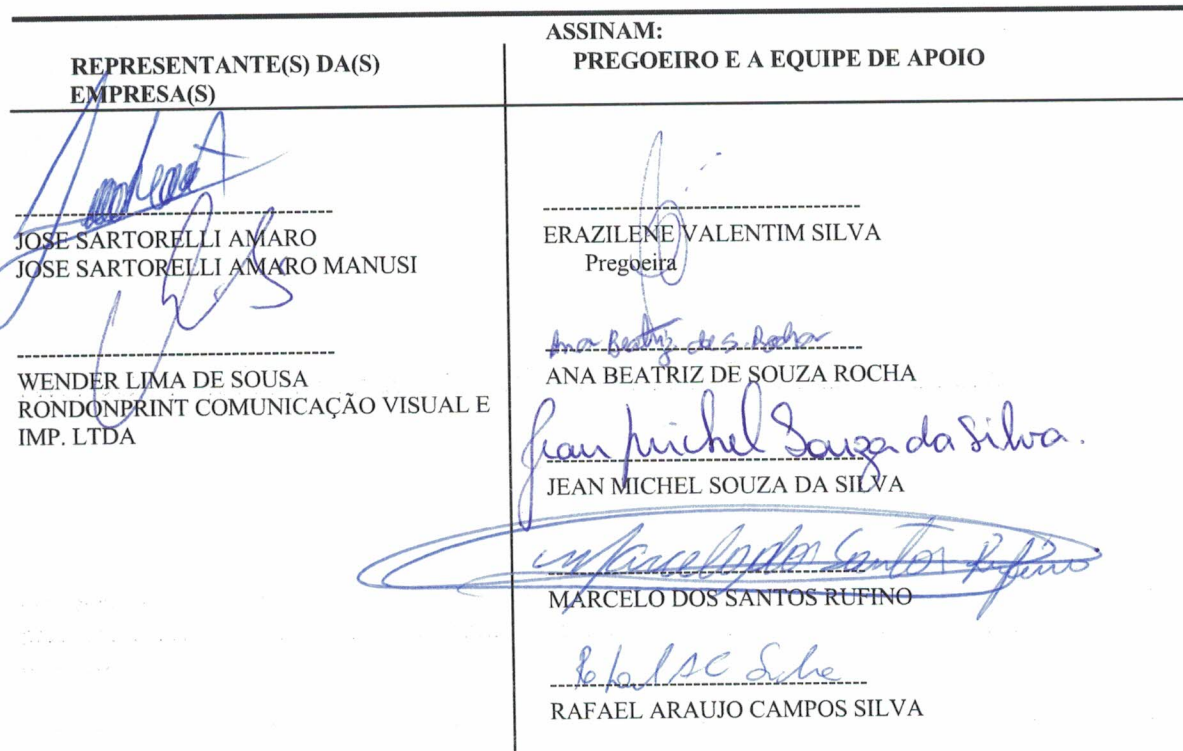 ASSINAM:
REPRESENTANTE(S) DA(S)
EMPRESA(S)
JOSE SARTORELLI AMARO
JOSE SARTORELLI AMARO MANUSI
WENDER LIMA DE SOUSA
RONDONPRINT COMUNICAÇÃO VISUAL E
IMP. LTDA
PREGOEIRO E A EQUIPE DE APOIO
ERAZILENE VALENTIM SILVA
Pregoeira
Ana Beatriz de S. Rocha
ANA BEATRIZ DE SOUZA ROCHA
Jean Michel Souza da Silva.
JEAN MICHEL SOUZA DA SILVA
Marcelo dos Santos Rufino
MARCELO DOS SANTOS RUFINO
Rafael AC Silva
RAFAEL ARAUJO CAMPOS SILVA